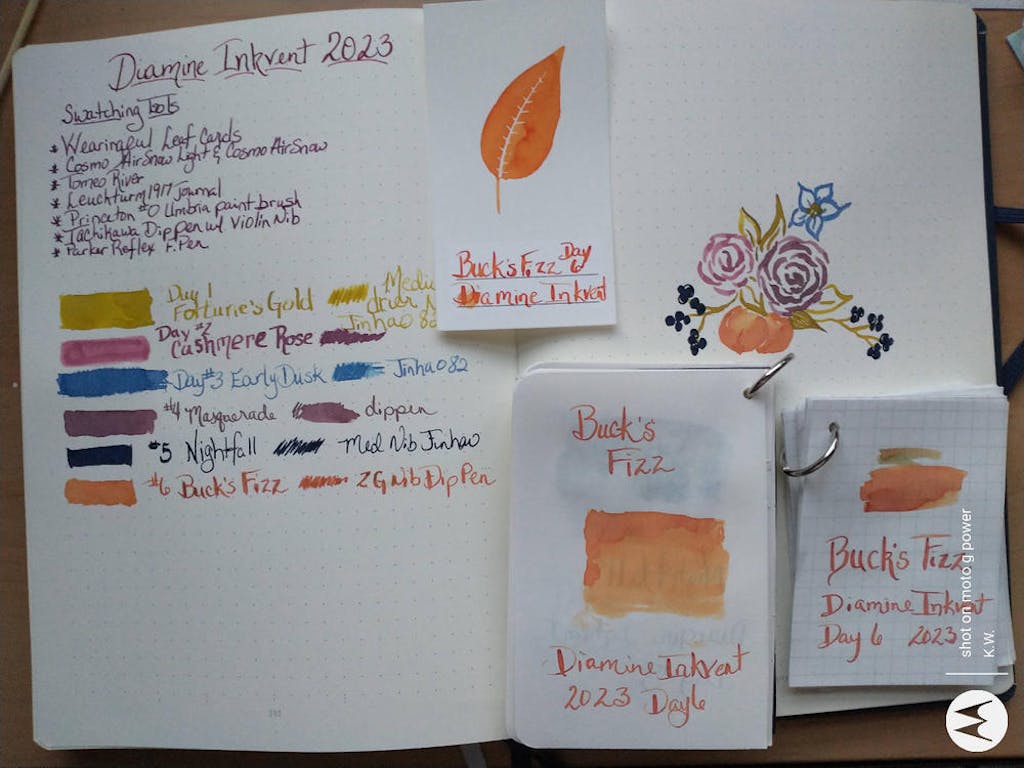 Diamine Inkvent 2023
Swatching Tools
* Wearingeul Leaf Cards
* Cosmo AirSnow Light & Cosmo AirSnow
* Tomeo River
* Leuchturm 1917 Journal
* Princeton #0 Umbria paint brush
* Tachikawa Dip Pen w/ Violin Nib
* Parker Reflex F. Pen
Day 1
Fortune's Gold
Jinhao 82
Day #2
Cashmere Rose
Day #3 Early Dusk Jinhao 82
#4 Masquerade dip pen
#5 Nightfall Med Nib Jinhao
#6 Buck's Fizz ZG Nib Dip Pen
Buck's Fizz Day 6
Diamine Inkvent
Buck's
Fizz
Diamine Inkvent
2023 Day 6
Buck's Fizz
Diamine Inkvent
Day 6 2023
shot on moto g power
K.W.